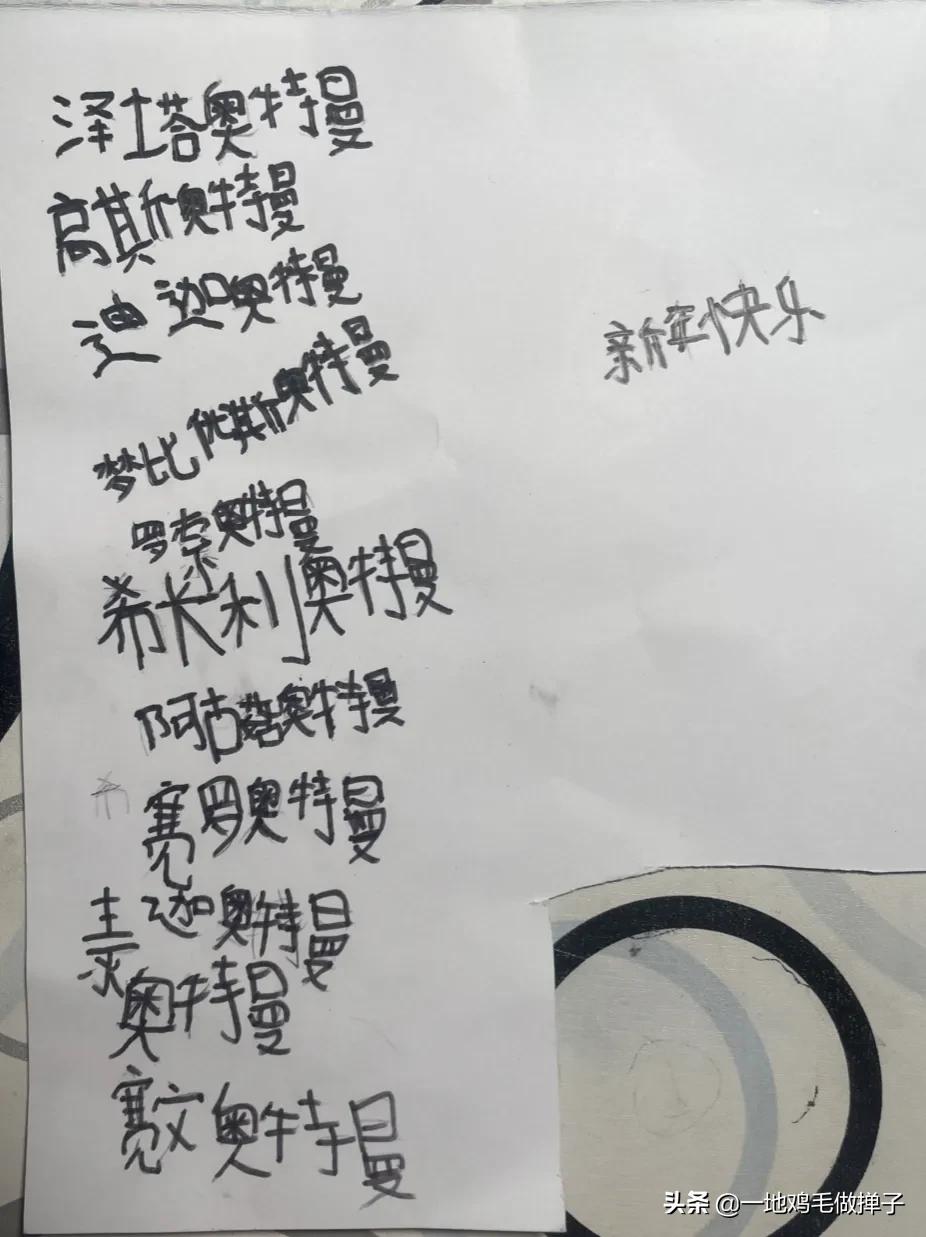 泽塔奥特曼
高斯奥特曼
迪迦奥特曼
新年快乐
梦比优斯奥特曼
罗索奥特曼
希卡利奥特曼
阿古茹奥特曼
赛罗奥特曼
迦奥特曼
奥特曼
赛文奥特曼
头条 @一地鸡毛做掸子